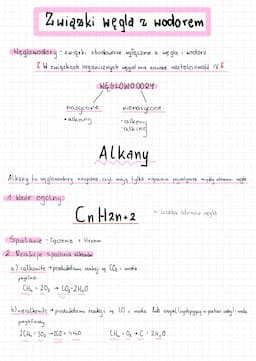 Związki węgla z wodorem
Węglowodory - związki zbudowane wyłącznie z węgla i wodoru
W związkach organicznych węgiel ma zawsze wartościowość IV
WĘGLOWODORY
nasycone nienasycone
• alkany - alkeny
- alkiny
Alkany
Alkany to węglowodory nasycone, czyli mają tylko wiązania pojedyncze między atomami węgla
1. Wzór ogólny
CnH2n+2 n - liczba atomów węgla
Spalanie - łączenie z tlenem
2. Reakcje spalania alkanów
a) całkowite → produktami reakcji są CO₂ i woda
CH₄ + 2O₂ → CO₂ + 2H₂O
b) niecałkowite → produktami reakcji są CO i woda lub węgiel
2CH₄ + 3O₂ → 2CO + 4H₂O CH₄ + O₂ → C + 2H₂O